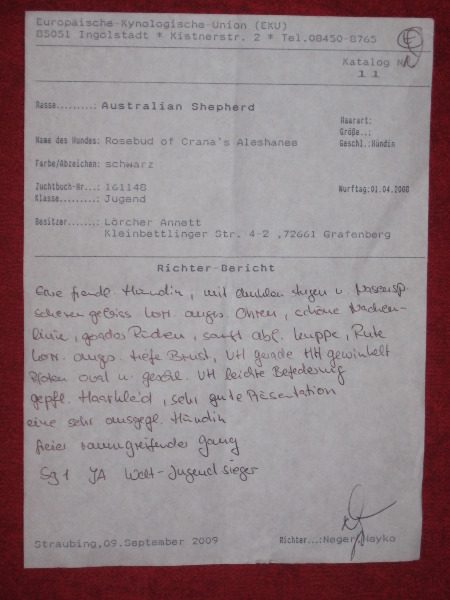 Europäische-Kynologische-Union (EKU)
85051 Ingolstadt * Kistnerstr. 2 * Tel.08450-8765
Katalog N
11
Rasse..........: Australian Shepherd
Haarart:
Größe..:
Name des Hundes: Rosebud of Crana's Aleshanee
Geschl.:Hündin
Farbe/Abzeichen: schwarz
Zuchtbuch-Nr...: 161148
Wurftag:01.04.2008
Klasse.........: Jugend
Besitzer.......: Lörcher Annett
Kleinbettlinger Str. 4-2 ,72661 Grafenberg
Richter-Bericht
Eine freudl. Hündin, mit dunklen Augen u. Nasensp.
scherengebiss korr. anges. Ohren, schöne Nacken-
linie, gerader Rücken, sanft abf. kruppe, Rute
korr. anges. tiefe Brust, VH gerade HH gewinkelt
Pfoten oval u. geschl. VH leichte Befederung
gepfl. Haarkleid, sehr gute Präsentation
eine sehr ausgegl. Hündin
freier raumgreifender Gang
Sg 1 JA Welt-Jugendsieger
Straubing,09.September 2009
Richter..:Neger, Heyko